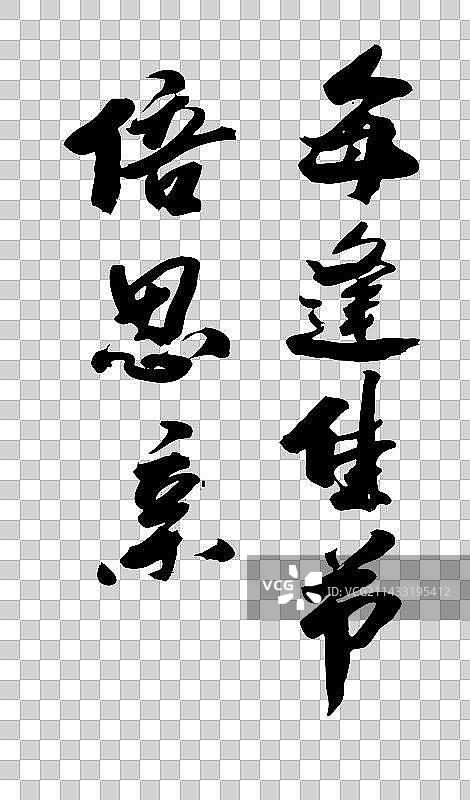 每逢佳节
倍思亲
VCG
ID: VCG211433195412